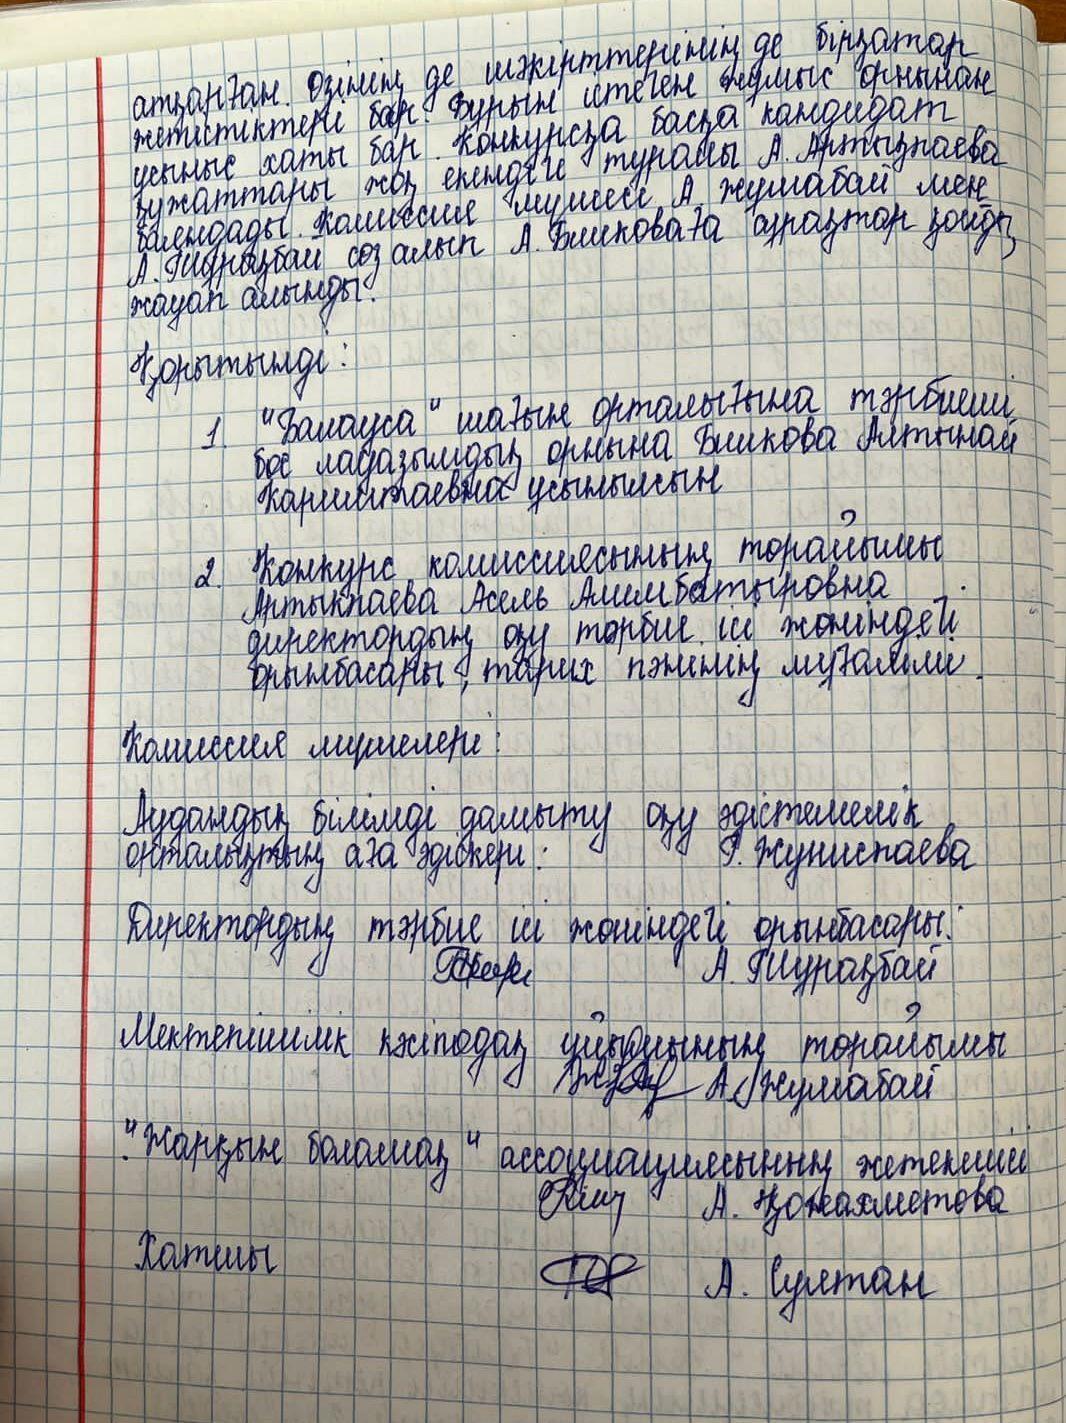 атқарған. Өзінің де шәкірттерінің де бірқатар
жетістіктері бар. Бұрын істеген жұмыс орнынан
ұсыныс хаты бар. Конкурсқа басқа кандидат
құжаттары жоқ екендігі туралы А. Артықпаева
баяндады. Комиссия мүшесі А. Жумабай мен
А. Тұрақбай сөз алып А. Бликоваға сұрақтар қойды,
жауап алынды.
Қорытынді:
1. "Балауса" шағын орталығына тәрбиеші
бос лауазымдық орнына Бликова Алтынай
Каримтаевна ұсынылсын
2. Конкурс комиссиясының төрайымы
Артыкпаева Асель Алимбатыровна
директордың оқу тәрбие ісі жөніндегі
орынбасары, тарих пәнінің мұғалімі.
Комиссия мүшелері:
Аудандық білімді дамыту оқу әдістемелік
орталықтың аға әдіскері: Г. Жуниспаева
Директордың тәрбие ісі жөніндегі орынбасары:
А. Тұрақбай
Мектепішілік кәсіподақ ұйымының төрайымы
А. Жумабай
"Жарқын болашақ" ассоциациясының жетекшісі
А. Қожахметова
Хатшы А. Султан